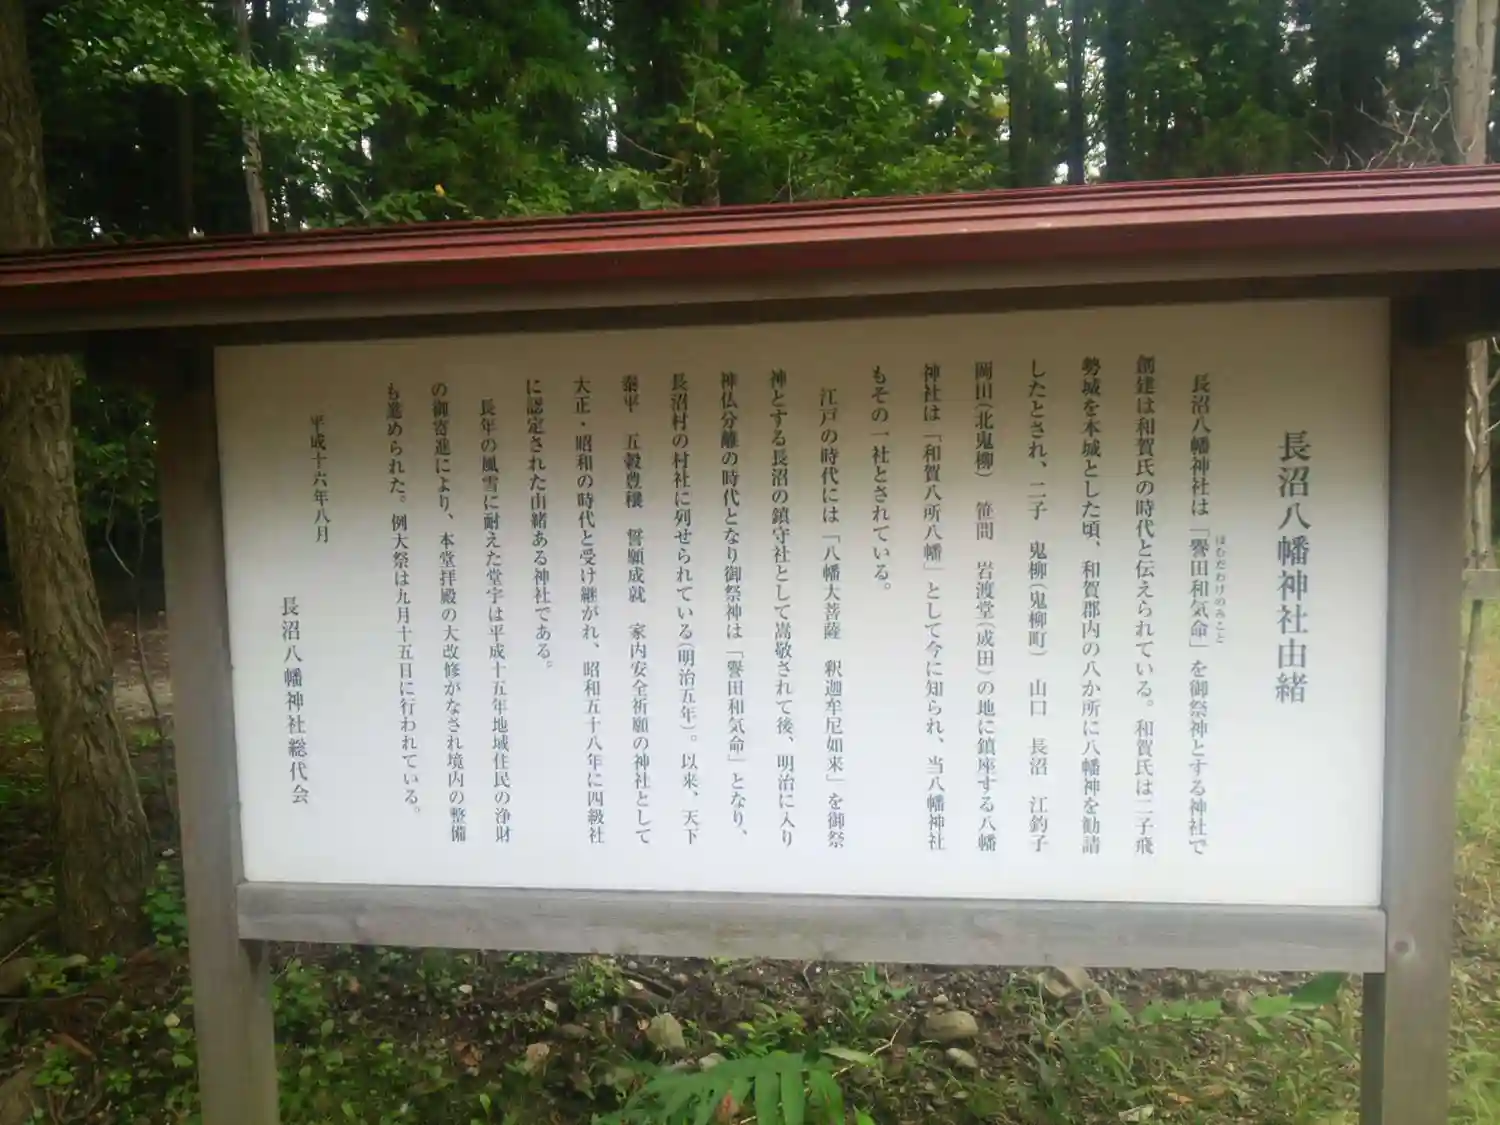 長沼八幡神社由緒
長沼八幡神社は「譽田和気命」を御祭神とする神社で
ほむだわけのみこと
創建は和賀氏の時代と伝えられている。和賀氏は二子飛
勢城を本城とした頃、和賀郡内の八か所に八幡神を勧請
したとされ、二子　鬼柳(鬼柳町)　山口　長沼　江釣子
岡田(北鬼柳)　笹間　岩渡堂(成田)の地に鎮座する八幡
神社は「和賀八所八幡」として今に知られ、当八幡神社
もその一社とされている。
江戸の時代には「八幡大菩薩　釈迦牟尼如来」を御祭
神とする長沼の鎮守社として嵩敬されて後、明治に入り
神仏分離の時代となり御祭神は「譽田和気命」となり、
長沼村の村社に列せられている(明治五年)。以来、天下
泰平　五穀豊穣　誓願成就　家内安全祈願の神社として
大正・昭和の時代と受け継がれ、昭和五十八年に四級社
に認定された由緒ある神社である。
長年の風雪に耐えた堂宇は平成十五年地域住民の浄財
の御寄進により、本堂拝殿の大改修がなされ境内の整備
も進められた。例大祭は九月十五日に行われている。
平成十六年八月
長沼八幡神社総代会